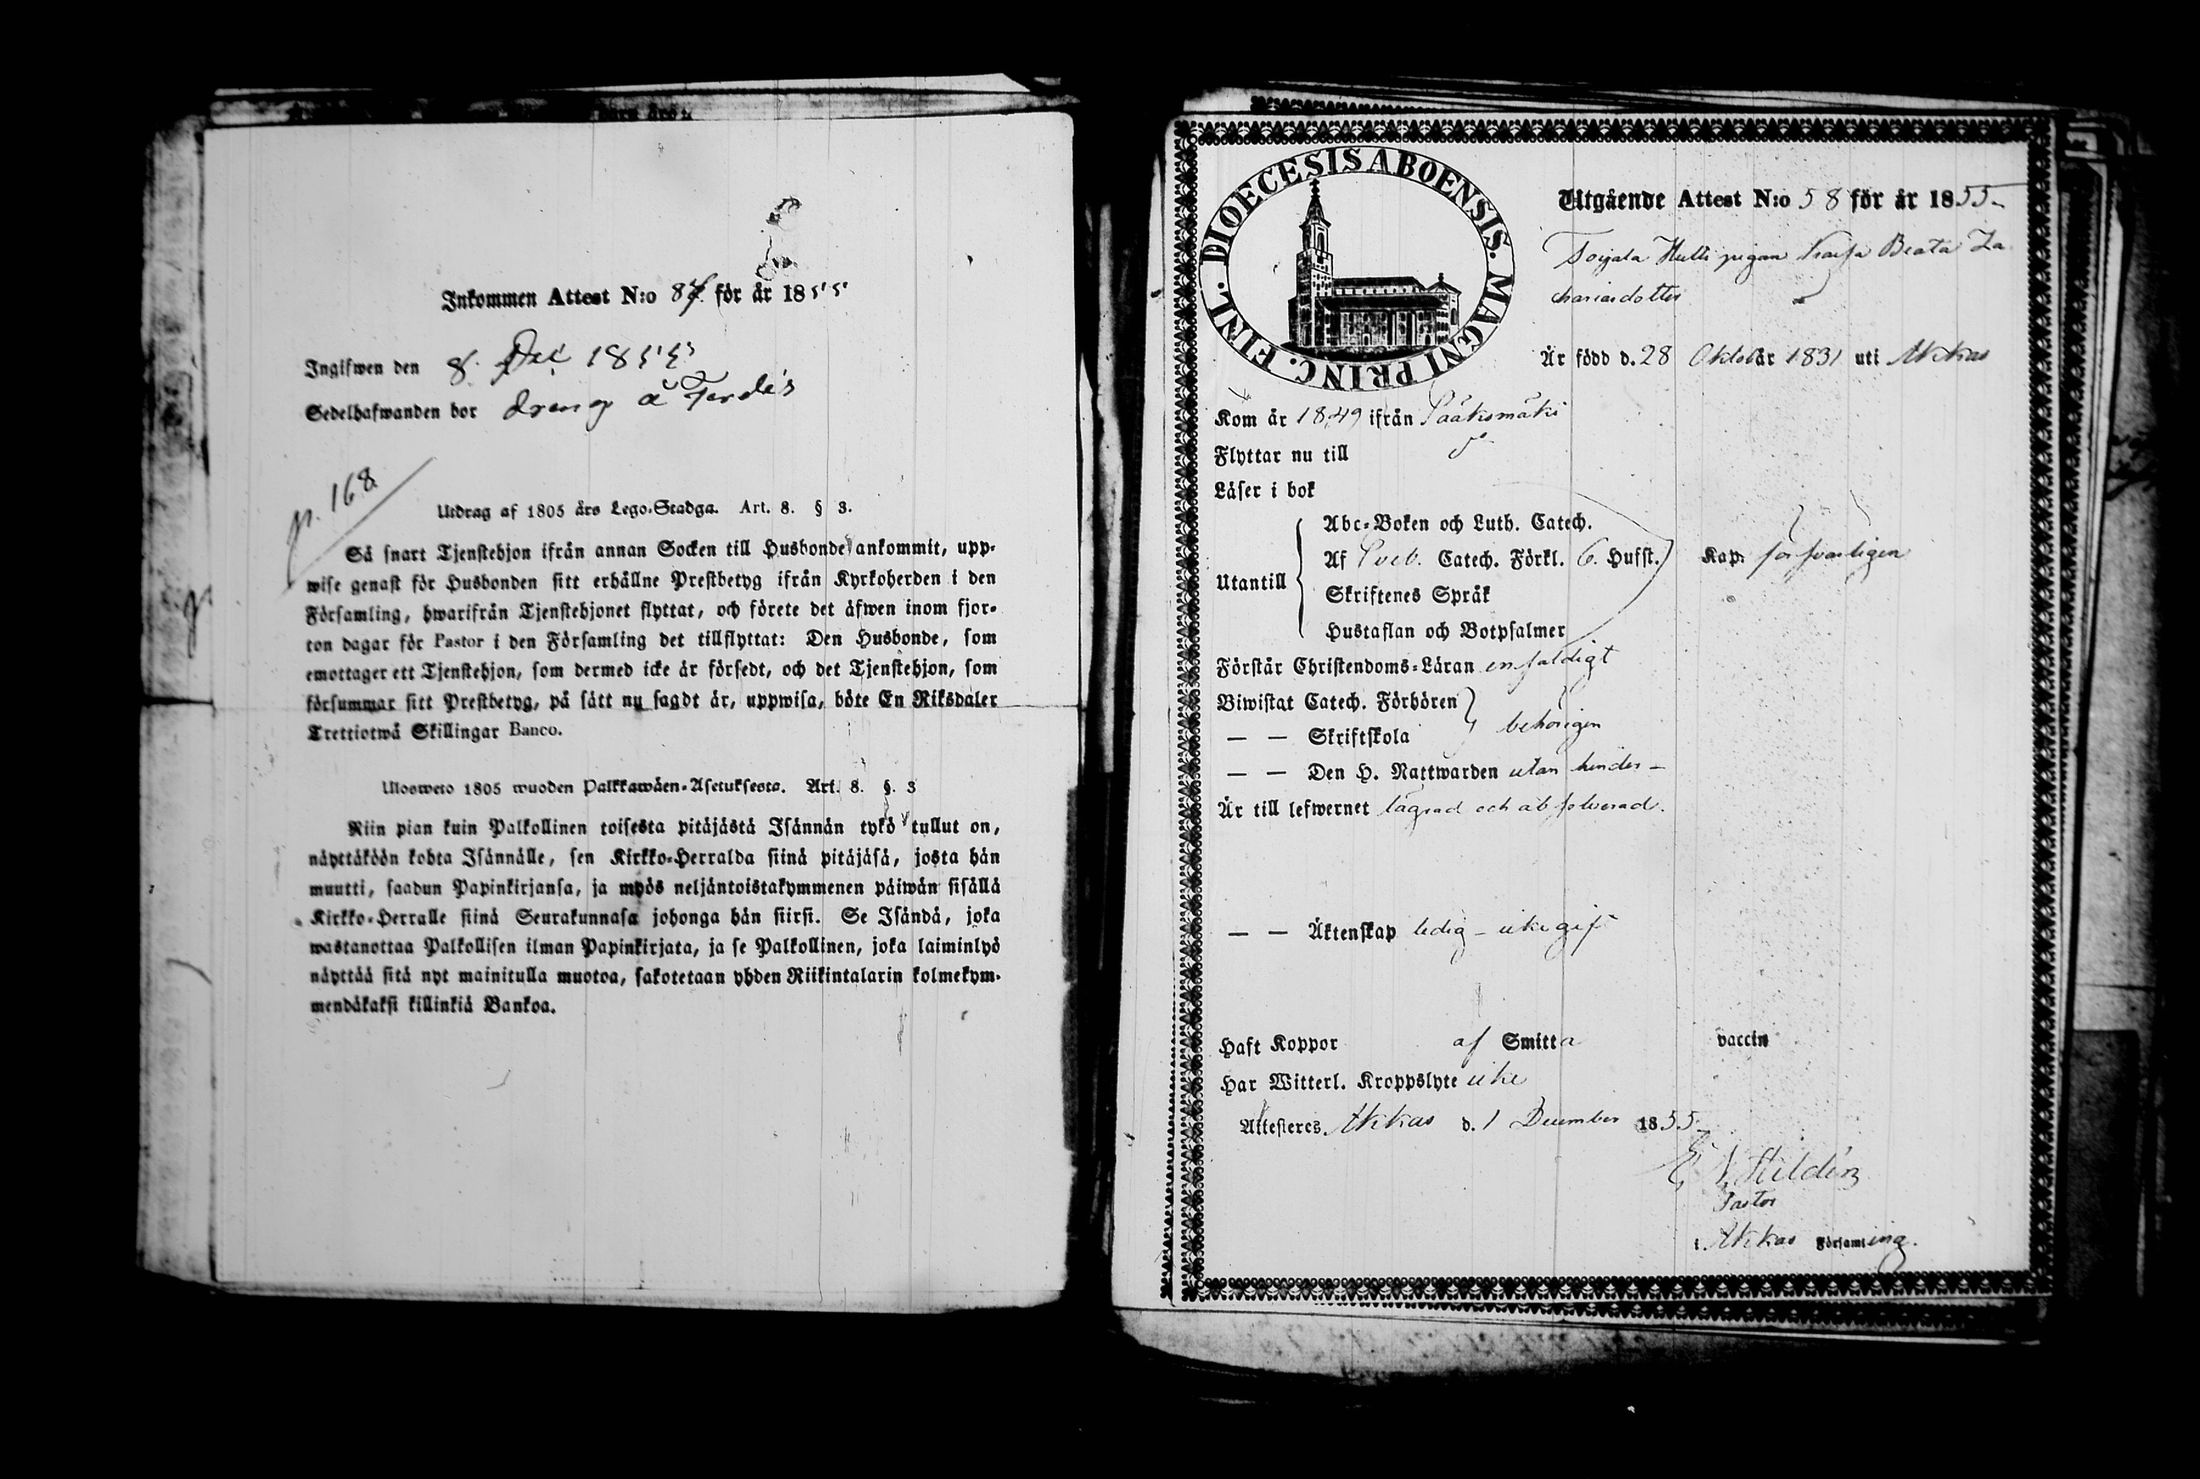 Inkommen Attest N:o 87 för år 1855
Ingifwen den 8. Dec 1855
Sedelhafwanden bor dreng å Tordis
p. 168.
Utdrag af 1805 års Lego-Stadga. Art. 8. § 3.
Så snart Tjenstehjon ifrån annan Socken till Husbonde ankommit, upp-
wise genast för Husbonden sitt erhållne Prestbetyg ifrån Kyrkoherden i den
Församling, hwarifrån Tjenstehjonet flyttat, och förete det äfwen inom fjor-
ton dagar för Pastor i den Församling det tillflyttat: Den Husbonde, som
emottager ett Tjenstehjon, som dermed icke är försedt, och det Tjenstehjon, som
försummar sitt Prestbetyg, på sätt nu sagdt är, uppwisa, böte En Riksdaler
Trettiotwå Skillingar Banco.
Ulosweto 1805 wuoden Palkkawäen-Asetuksesta. Art. 8. §. 3
Niin pian kuin Palkollinen toisesta pitäjästä Isännän tykö tullut on,
näyttäköön kohta Isännälle, sen Kirkko-Herralda siinä pitäjäsä, josta hän
muutti, saadun Papinkirjansa, ja myös neljäntoistakymmenen päiwän sisällä
Kirkko-Herralle siinä Seurakunnasa johonga hän siirsi. Se Isändä, joka
wastanottaa Palkollisen ilman Papinkirjata, ja se Palkollinen, joka laiminlyö
näyttää sitä nyt mainitulla muotoa, sakotetaan yhden Riikintalarin kolmekym-
mendäkaksi killinkiä Bankoa.
DIOECESIS ABOENSIS. MAGNI PRINC. FINL.
Utgående Attest N:o 58 för år 1855
Toijala Hulli pigan Beata Za
chariasdotter
Är född d. 28 Oktob år 1831 uti Akkas
Kom år 1849 ifrån Sääksmäki
Flyttar nu till
Läser i bok
Abc-Boken och Luth. Catech.
Af Sveb. Catech. Förkl. 6. Husst. Kap. försvarligen
Utantill
Skriftenes Språk
Hustaflan och Botpsalmer
Förstår Christendoms-Läran enfaldigt
Biwistat Catech. Förhören
— — Skriftskola behörigen
— — Den H. Nattwarden utan hinder
Är till lefwernet lägrad och absolverad.
— — Äktenskap ledig – icke gift
Haft Koppor af Smitta vaccin
Har Witterl. Kroppslyte icke
Attesteres Akkas d. 1 December 1855
Hildén
Pastor
i Akkas Församling.